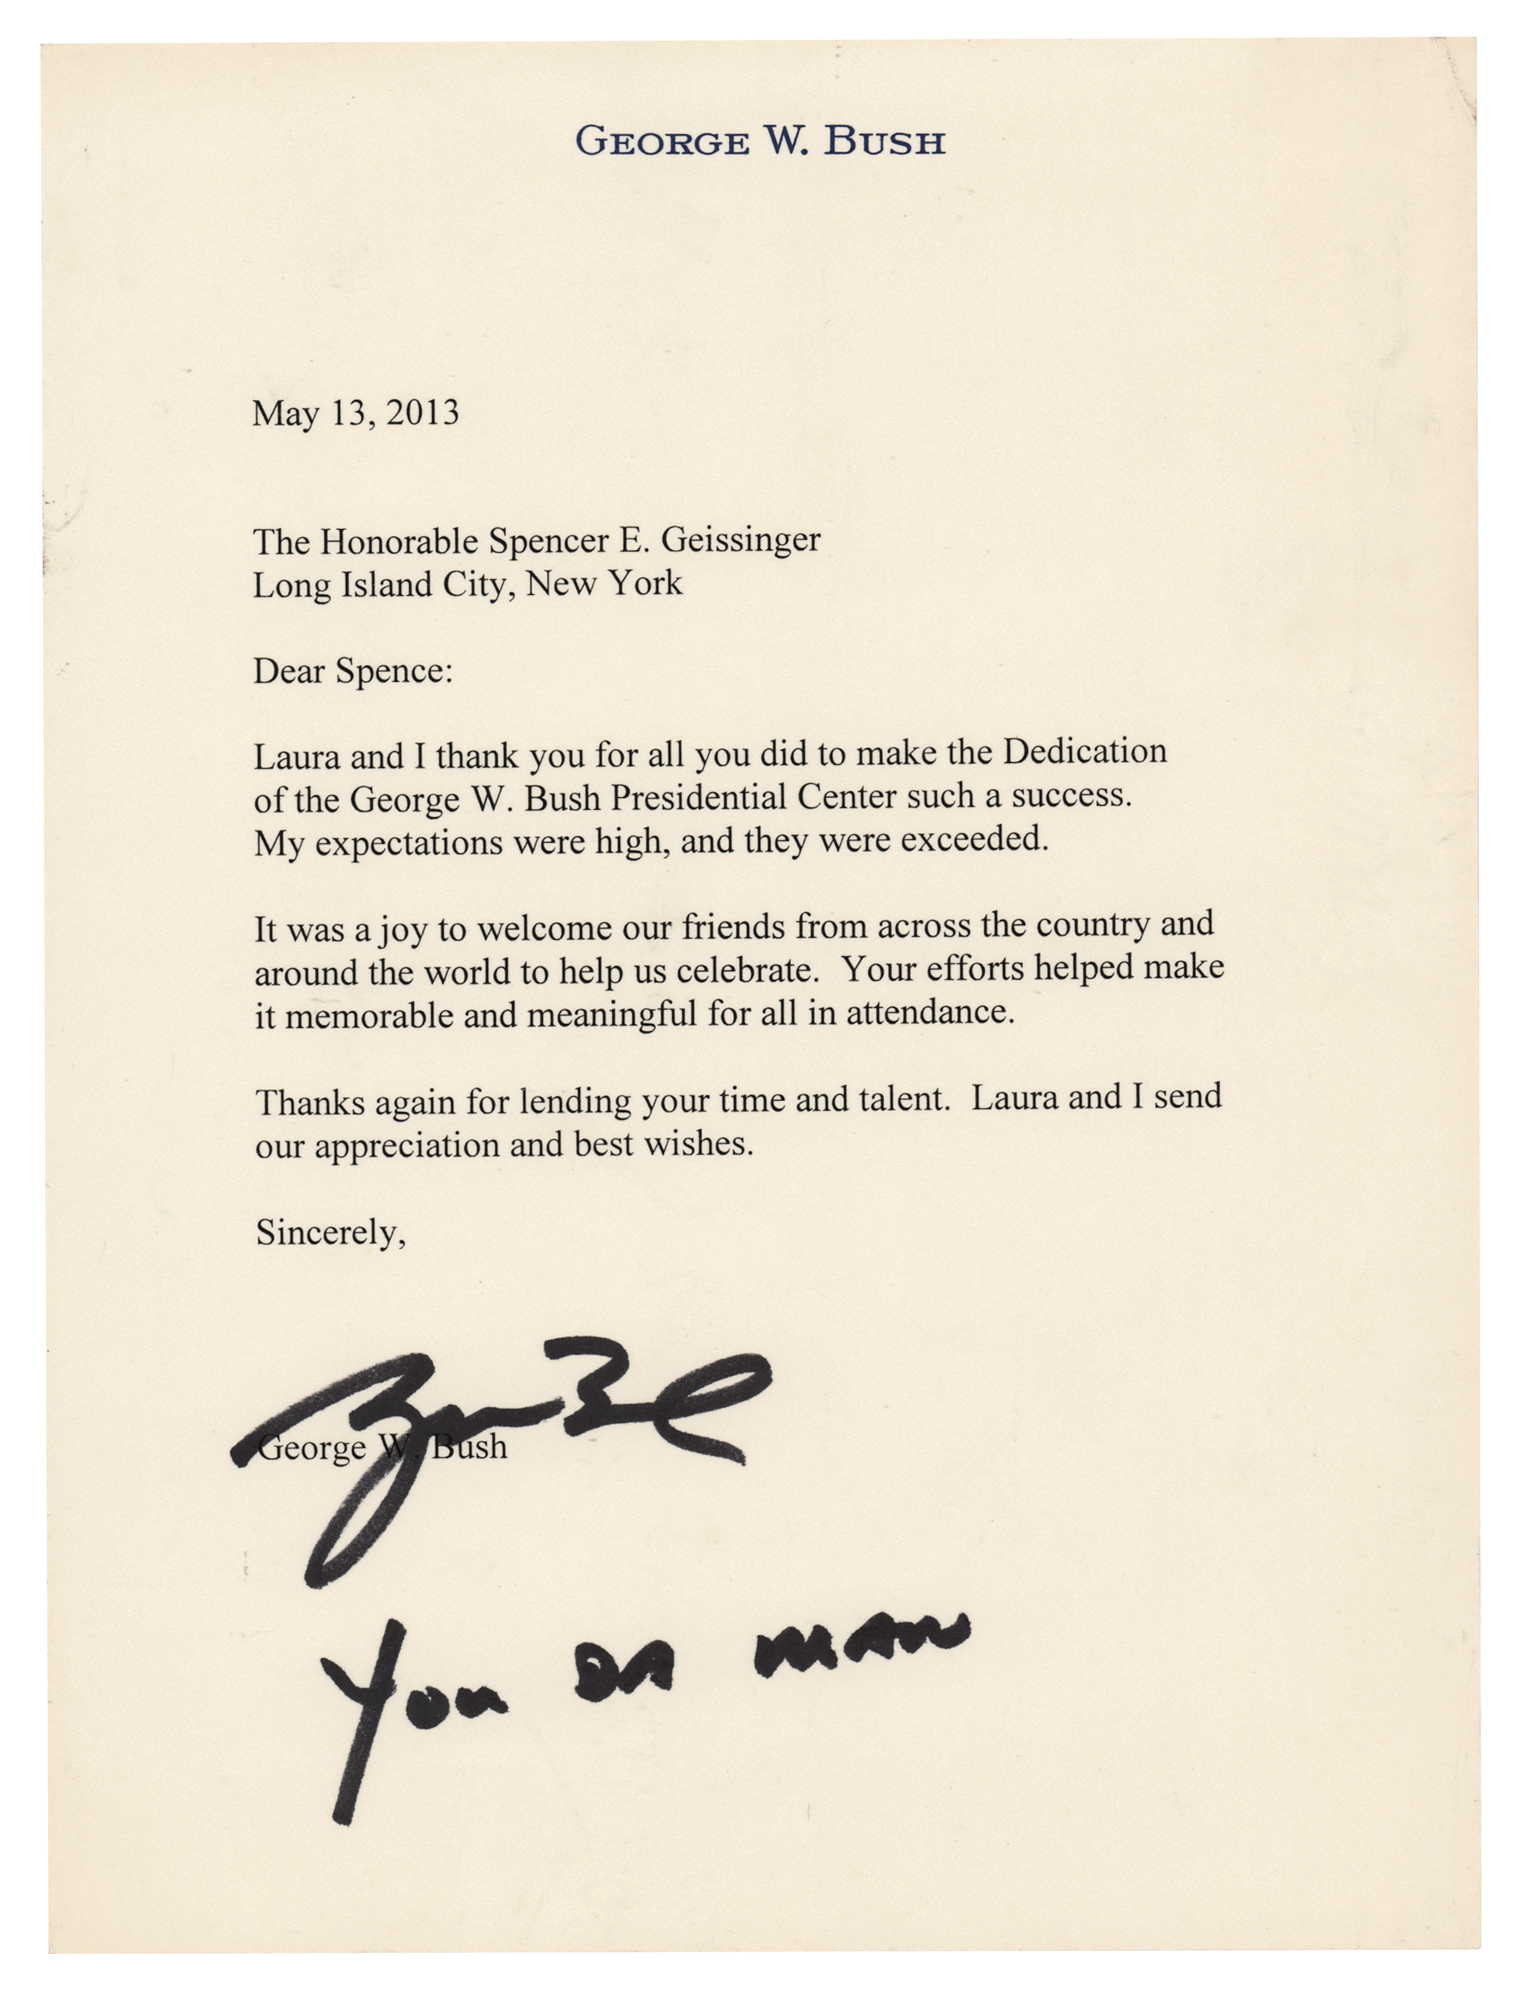 GEORGE W. BUSH
May 13, 2013
The Honorable Spencer E. Geissinger
Long Island City, New York
Dear Spence:
Laura and I thank you for all you did to make the Dedication
of the George W. Bush Presidential Center such a success.
My expectations were high, and they were exceeded.
It was a joy to welcome our friends from across the country and
around the world to help us celebrate.  Your efforts helped make
it memorable and meaningful for all in attendance.
Thanks again for lending your time and talent.  Laura and I send
our appreciation and best wishes.
Sincerely,
George W. Bush
You DA MAN